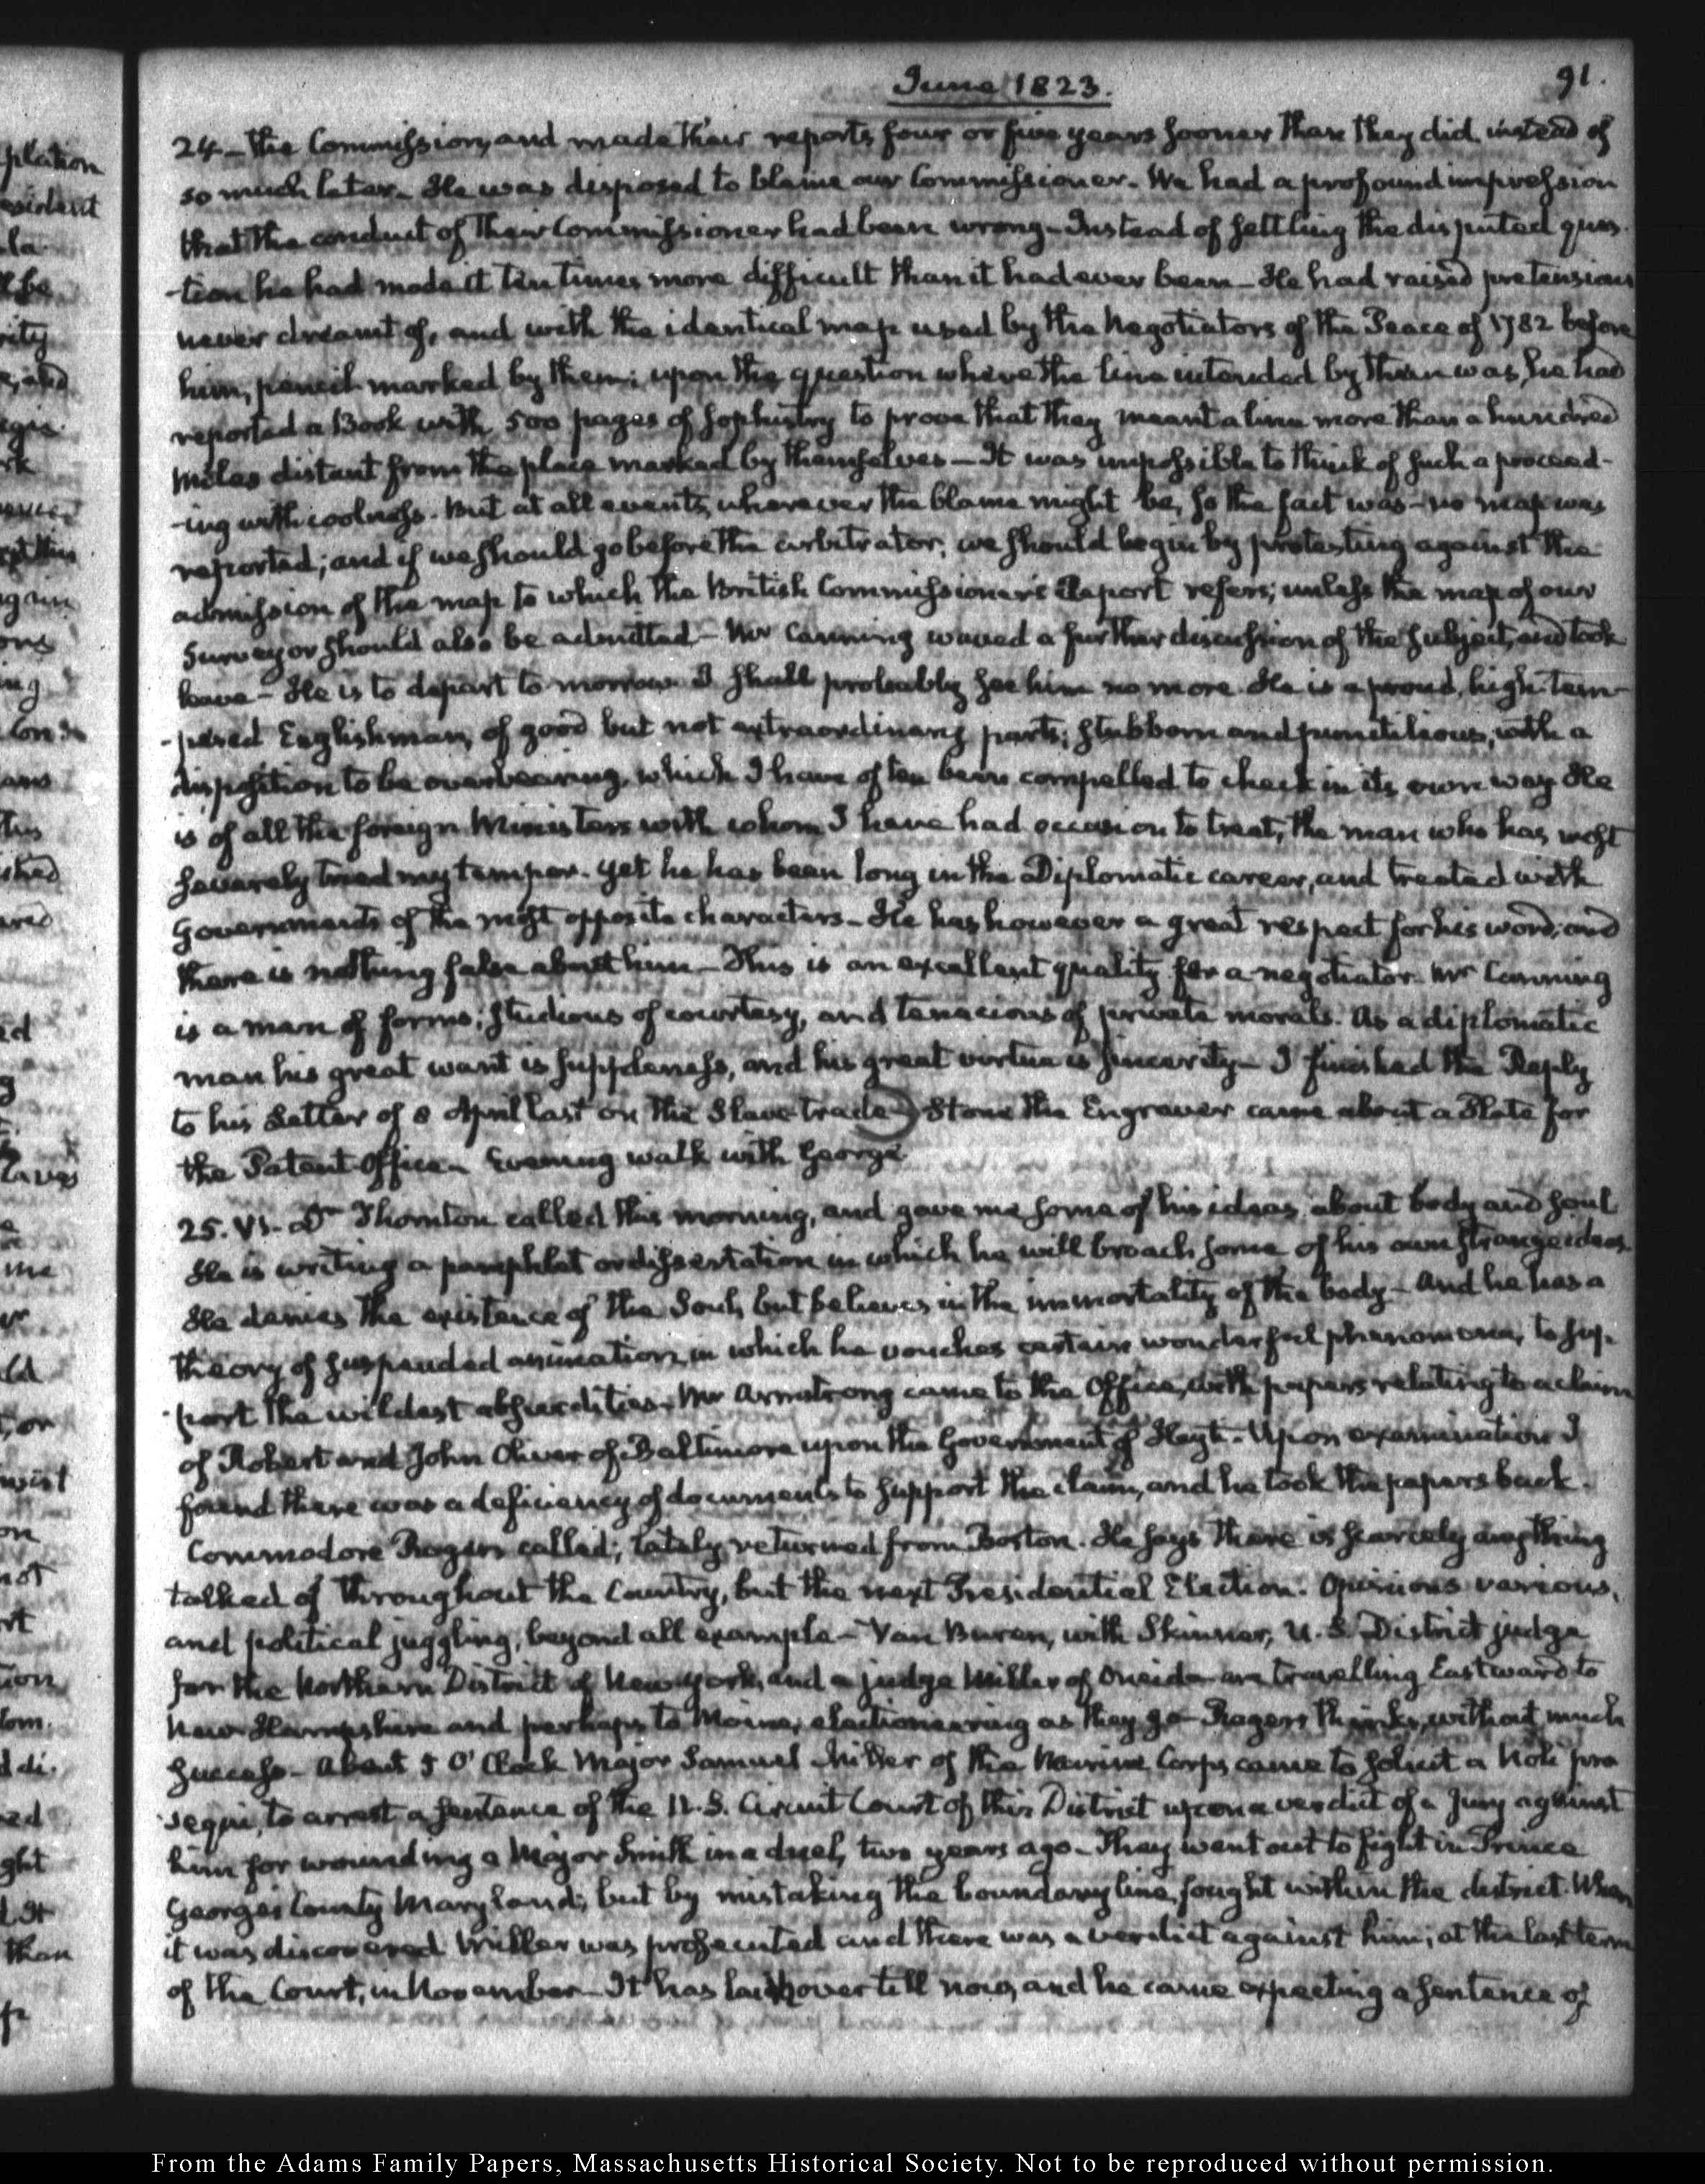 plation
esident
la
be
rity
e, and
rk
ing
ans
this
shed
ared
ed
g
me
ld
, or
wist
on
not
rt
ion
om.
di.
ed
ght
than
June 1823.
91.
24 - the Commission, and made their reports four or five years sooner than they did, instead of
so much later - He was disposed to blame our Commissioner. We had a profound impression
that the conduct of their Commissioner had been wrong - Instead of settling the disputed ques-
-tion he had made it ten times more difficult than it had ever been - He had raised pretensions
never dreamt of, and with the identical map used by the Negotiators of the Peace of 1782 before
him, pencil marked by them; upon the question where the line intended by them was, he had
reported a Book with 500 pages of sophistry to prove that they meant a line more than a hundred
miles distant from the place marked by themselves - It was impossible to think of such a proceed-
-ing with coolness. But at all events, wherever the blame might be, so the fact was - no map was
reported; and if we should go before the arbitrator, we should begin by protesting against the
admission of the map to which the British Commissioner's Report refers; unless the map of our
Surveyor should also be admitted - Mr Canning waved a further discussion of the subject, and took
leave - He is to depart to morrow. I shall probably see him no more. He is a proud, high-tem-
-pered Englishman, of good but not extraordinary parts; stubborn and punctilious, with a
disposition to be overbearing, which I have often been compelled to check in its own way. He
is of all the foreign Ministers with whom I have had occasion to treat, the man who has most
severely tried my temper. Yet he has been long in the Diplomatic career, and treated with
Governments of the most opposite characters - He has however a great respect for his word, and
there is nothing false about him - This is an excellent quality for a negotiator. Mr Canning
is a man of forms; studious of courtesy, and tenacious of private morals. As a diplomatic
man his great want is suppleness, and his great virtue is sincerity - I finished the Reply
to his Letter of 8 April last on the Slave trade - Stone the Engraver came about a Plate for
the Patent Office - Evening walk with George
25. VI. Dr Thornton called this morning, and gave me some of his ideas about body and soul
He is writing a pamphlet or dissertation in which he will broach some of his own strange ideas
He denies the existence of the Soul, but believes in the immortality of the body - And he has a
theory of suspended animation, in which he vouches certain wonderful phenomena, to sup-
-port the wildest absurdities. Mr Armstrong came to the Office, with papers relating to a claim
of Robert and John Oliver of Baltimore upon the Government of Hayti. Upon examination I
found there was a deficiency of documents to support the claim, and he took the papers back.
Commodore Rogers called; lately returned from Boston. He says there is scarcely anything
talked of throughout the Country, but the next Presidential Election. Opinions various,
and political juggling, beyond all example - Van Buren, with Skinner, U. S. District judge
for the Northern District of New York, and a judge Miller of Oneida are travelling Eastward to
New Hampshire and perhaps to Maine, electioneering as they go - Rogers thinks, without much
success - About 5 O'Clock Major Samuel Miller of the Marine Corps came to solicit a Noli pro
sequi, to arrest a sentence of the U. S. Circuit Court of this District upon a verdict of a Jury against
him for wounding a Major Smith in a duel, two years ago - They went out to fight in Prince
Georges County Maryland; but by mistaking the boundary line, fought within the district. When
it was discovered Miller was prosecuted and there was a verdict against him; at the last term
of the Court, in November - It has laid over till now, and he came expecting a sentence of
From the Adams Family Papers, Massachusetts Historical Society. Not to be reproduced without permission.